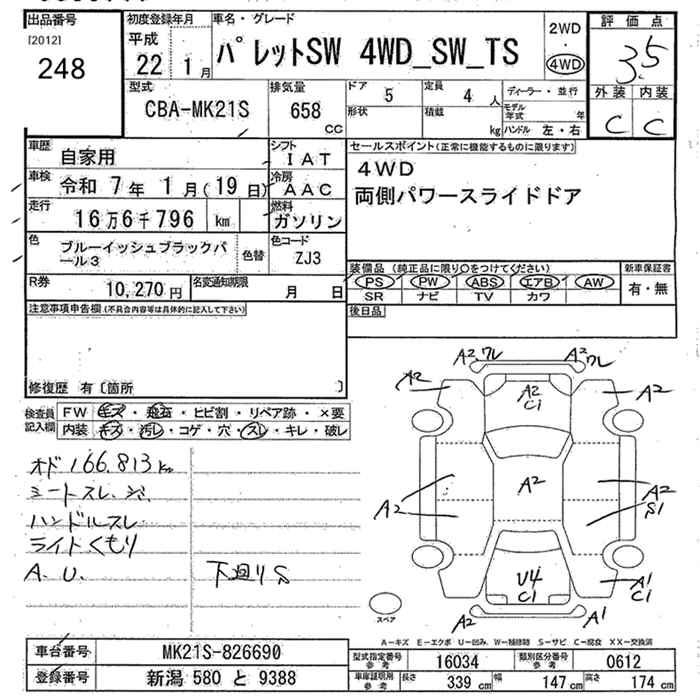 出品番号
[2012]
248
初度登録年月
平成
22 1 月
車名・グレード
パレットSW 4WD_SW_TS
2WD
・
4WD
評価点
3.5
外装 内装
C C
型式
CBA-MK21S
排気量
658
CC
ドア
5
定員
4 人
形状
積載
kg
ディーラー・並行
モデル年式 年
ハンドル 左・右
車歴
自家用
シフト
IAT
車検
令和 7 年 1 月(19 日)
冷房
AAC
走行
16万6千796 km
燃料
ガソリン
色
ブルーイッシュブラックパ
ール3
色替
色コード
ZJ3
R券
10,270 円
名変通知期限
月 日
セールスポイント(正常に機能するものに限ります)
4WD
両側パワースライドドア
装備品(純正品に限り○をつけてください)
PS PW ABS エアB AW
SR ナビ TV カワ
新車保証書
有・無
後日品
注意事項申告欄(不具合内容等は具体的に記入して下さい)
修復歴 有〔箇所 〕
検査員
記入欄
FW キズ・飛石・ヒビ割・リペア跡・×要
内装 キズ・汚レ・コゲ・穴・スレ・キレ・破レ
オド 166,813 km
シートスレ、シミ
ハンドルスレ
ライトくもり
A.U.
下廻りS
A2,ワレ A2ワレ
A2 A2
A2
C1
A2
A2
A2
S1
U4
C1
A1
C1
A2 A1
スペア
A-キズ E-エクボ U-凹み W-補修跡 S-サビ C-腐食 XX-交換済
車台番号
MK21S-826690
登録番号
新潟 580 と 9388
型式指定番号
参考
16034
類別区分番号
参考
0612
車庫証明用
参考
長さ 339 cm 幅 147 cm 高さ 174 cm